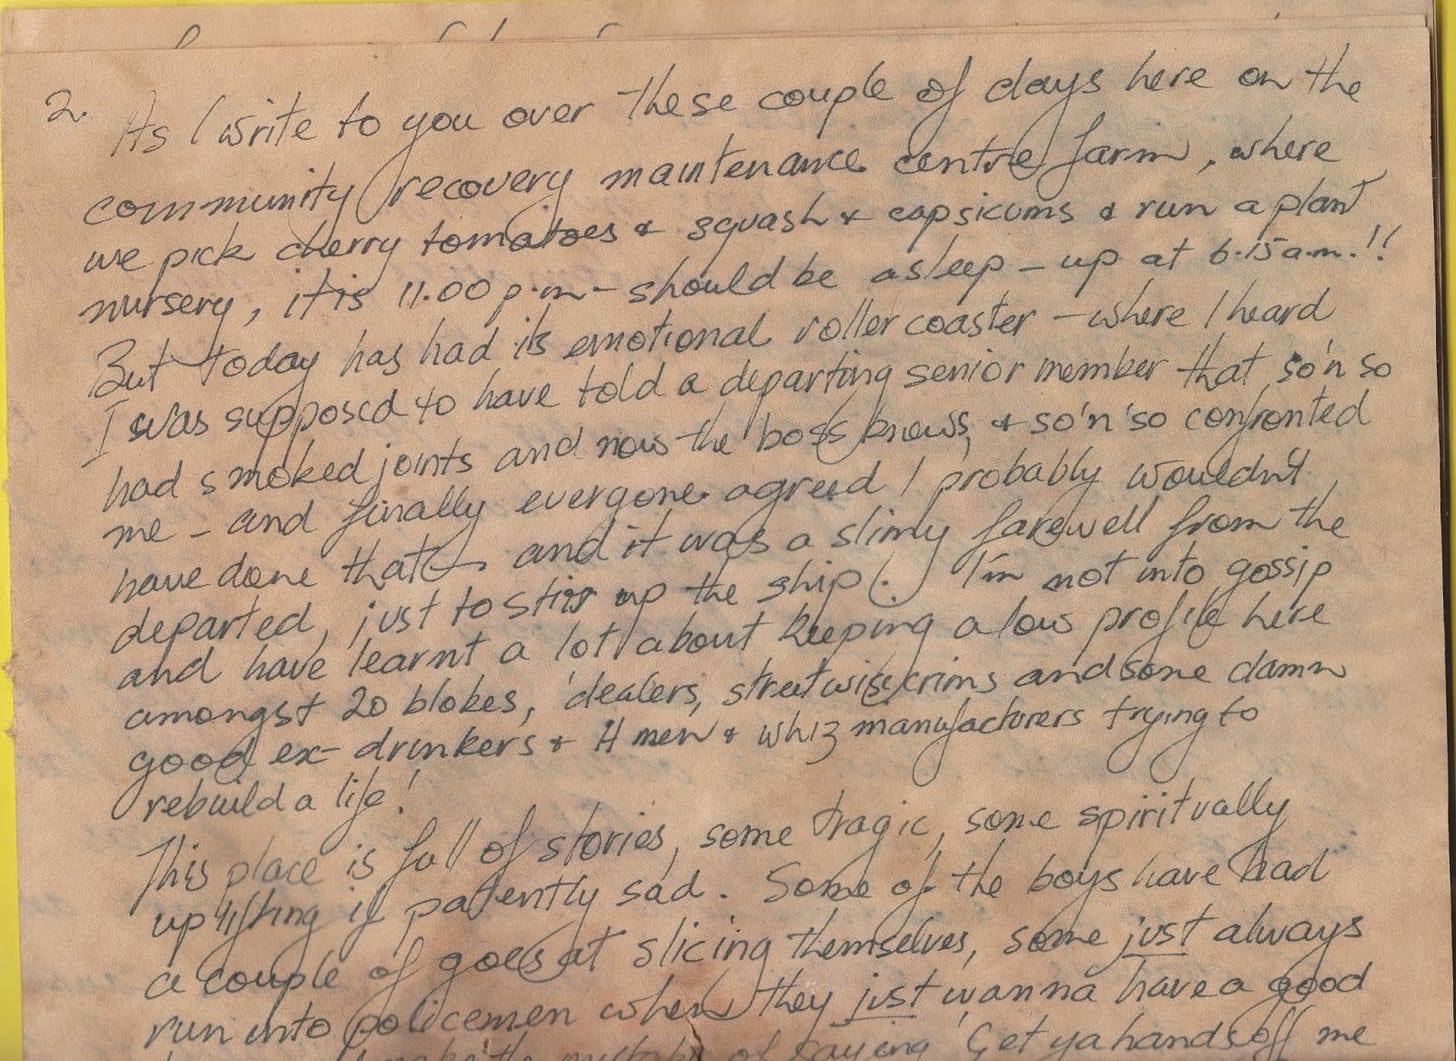 2. As I write to you over these couple of days here on the
community recovery maintenance centre farm, where
we pick cherry tomatoes & squash & capsicums & run a plant
nursery, it is 11.00 p.m – should be asleep – up at 6.15 a.m.!!
But today has had its emotional roller coaster – where I heard
I was supposed to have told a departing senior member that so'n so
had smoked joints and now the boss knows, & so'n'so confronted
me – and finally everyone agreed I probably wouldn't
have done that – and it was a slimy farewell from the
departed, just to stir up the ship! I'm not into gossip
and have learnt a lot about keeping a low profile here
amongst 20 blokes, 'dealers, streetwise crims and some damn
good ex-drinkers & H men & whiz manufacturers trying to
rebuild a life!
This place is full of stories, some tragic, some spiritually
uplifting if patently sad. Some of the boys have had
a couple of goes at slicing themselves, some just always
run into policemen when they just wanna have a good
make the mistake of saying 'Get ya hands off me